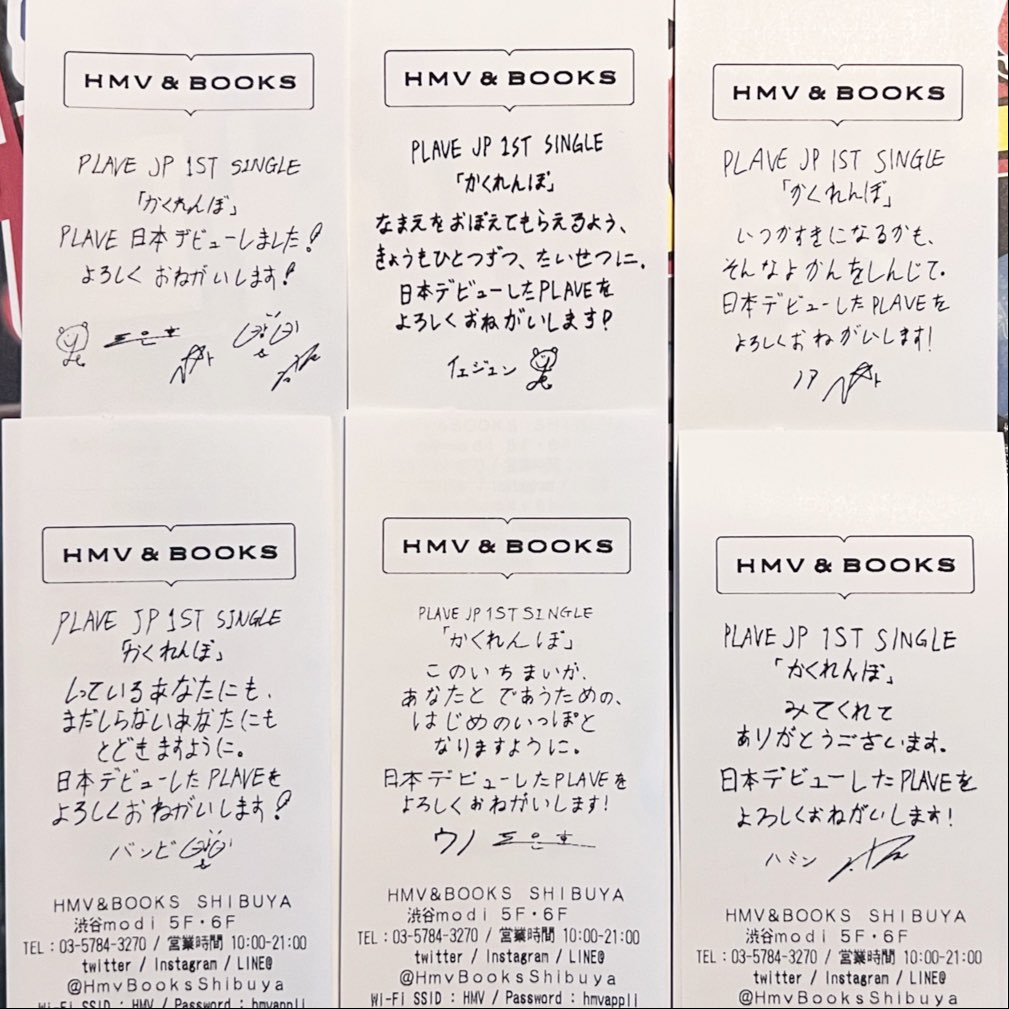 HMV & BOOKS
PLAVE JP 1ST SINGLE
「かくれんぼ」
PLAVE 日本デビューしました!
よろしく おねがいします!
HMV & BOOKS
PLAVE JP 1ST SINGLE
「かくれんぼ」
なまえをおぼえてもらえるよう、
きょうもひとつずつ、たいせつに.
日本デビューしたPLAVEを
よろしくおねがいします!
イェジュン
HMV & BOOKS
PLAVE JP 1ST SINGLE
「かくれんぼ」
いつかすきになるかも、
そんなよかんをしんじて.
日本デビューしたPLAVEを
よろしくおねがいします!
ノア
HMV & BOOKS
PLAVE JP 1ST SINGLE
「かくれんぼ」
しっているあなたにも、
まだしらないあなたにも
とどきますように。
日本デビューしたPLAVEを
よろしくおねがいします!
バンビ
HMV&BOOKS SHIBUYA
渋谷modi 5F・6F
TEL : 03-5784-3270 / 営業時間 10:00-21:00
twitter / Instagram / LINE@
@HmvBooksShibuya
Wi-Fi SSID : HMV / Password : hmvappli
HMV & BOOKS
PLAVE JP 1ST SINGLE
「かくれんぼ」
このいちまいが、
あなたと であうための、
はじめのいっぽと
なりますように。
日本デビューしたPLAVEを
よろしくおねがいします!
ウノ
HMV&BOOKS SHIBUYA
渋谷modi 5F・6F
TEL : 03-5784-3270 / 営業時間 10:00-21:00
twitter / Instagram / LINE@
@HmvBooksShibuya
Wi-Fi SSID : HMV / Password : hmvappli
HMV & BOOKS
PLAVE JP 1ST SINGLE
「かくれんぼ」
みてくれて
ありがとうございます.
日本デビューしたPLAVEを
よろしくおねがいします!
ハミン
HMV&BOOKS SHIBUYA
渋谷modi 5F・6F
TEL : 03-5784-3270 / 営業時間 10:00-21:00
twitter / Instagram / LINE@
@HmvBooksShibuya